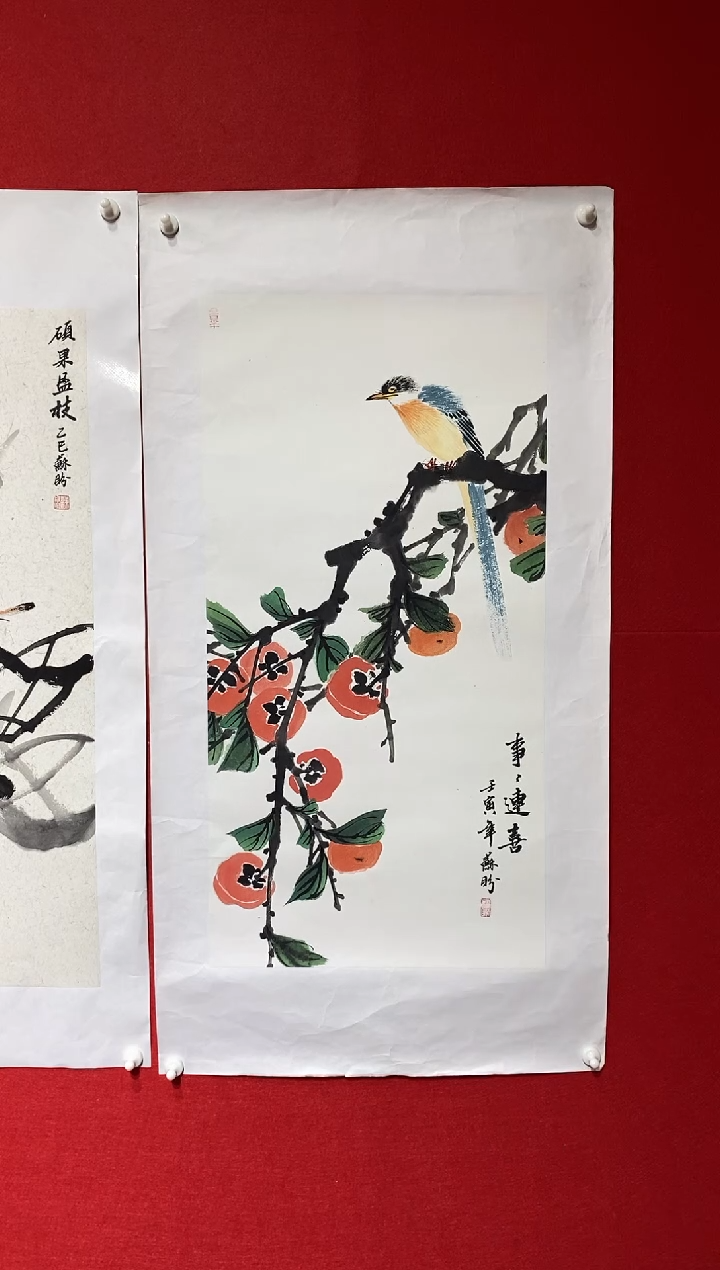 碩果盈枝
乙巳蘇盼
事々連喜
壬寅年蘇盼